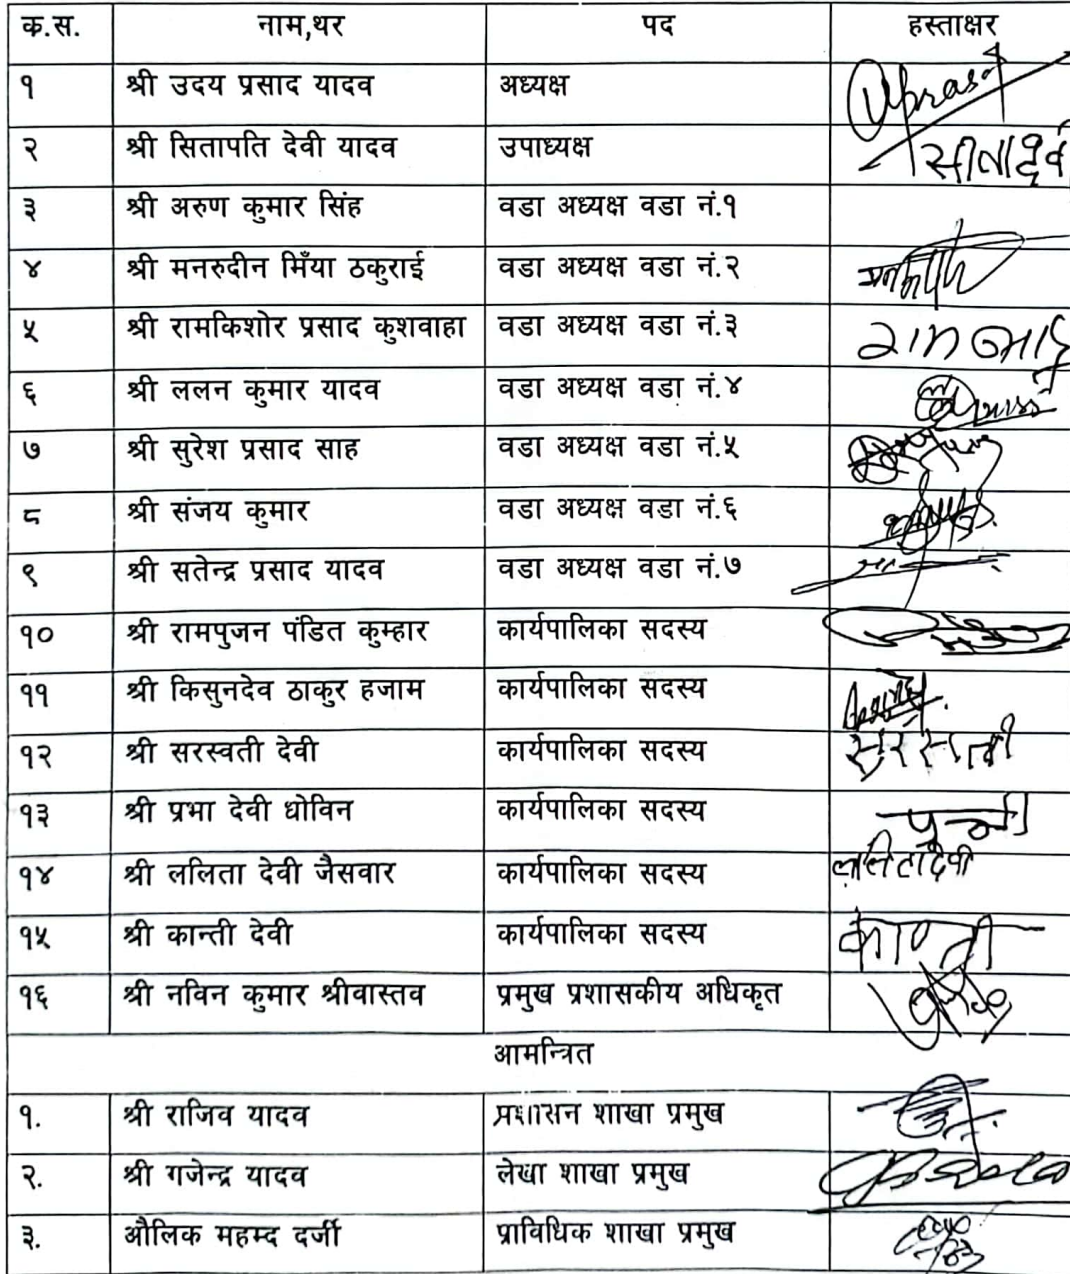 क.स. नाम,थर पद हस्ताक्षर
१ श्री उदय प्रसाद यादव अध्यक्ष
२ श्री सितापति देवी यादव उपाध्यक्ष
३ श्री अरुण कुमार सिंह वडा अध्यक्ष वडा नं.१
४ श्री मनरुदीन मिँया ठकुराई वडा अध्यक्ष वडा नं.२
५ श्री रामकिशोर प्रसाद कुशवाहा वडा अध्यक्ष वडा नं.३
६ श्री ललन कुमार यादव वडा अध्यक्ष वडा नं.४
७ श्री सुरेश प्रसाद साह वडा अध्यक्ष वडा नं.५
८ श्री संजय कुमार वडा अध्यक्ष वडा नं.६
९ श्री सतेन्द्र प्रसाद यादव वडा अध्यक्ष वडा नं.७
१० श्री रामपुजन पंडित कुम्हार कार्यपालिका सदस्य
११ श्री किसुनदेव ठाकुर हजाम कार्यपालिका सदस्य
१२ श्री सरस्वती देवी कार्यपालिका सदस्य
१३ श्री प्रभा देवी धोविन कार्यपालिका सदस्य
१४ श्री ललिता देवी जैसवार कार्यपालिका सदस्य ललितादेवी
१५ श्री कान्ती देवी कार्यपालिका सदस्य
१६ श्री नविन कुमार श्रीवास्तव प्रमुख प्रशासकीय अधिकृत
आमन्त्रित
१. श्री राजिव यादव प्रशासन शाखा प्रमुख
२. श्री गजेन्द्र यादव लेखा शाखा प्रमुख
३. औलिक महम्द दर्जी प्राविधिक शाखा प्रमुख